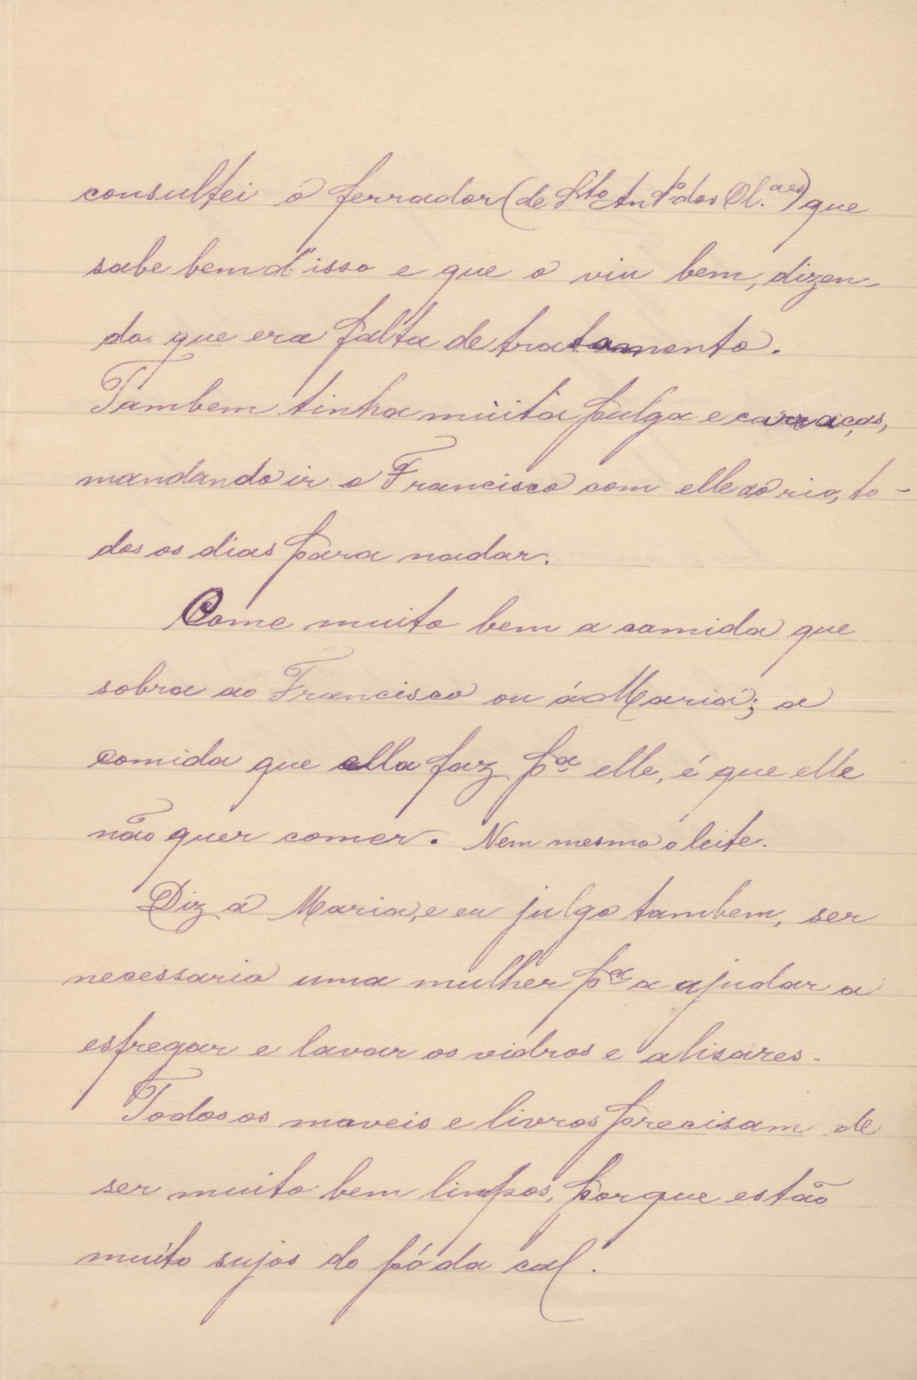 consultei o ferrador (de Sto Anto dos Ol.aes) que
sabe bem d'isso e que o viu bem, dizen-
do que era falta de tratamento.
Tambem tinha muita pulga e carraças,
mandando ir o Francisco com elle ao rio, to-
dos os dias para nadar.
Come muito bem a comida que
sobra ao Francisco ou á Maria; a
comida que ella faz pa elle, é que elle
não quer comer. Nem mesmo o leite.
Diz a Maria, e eu julgo tambem, ser
necessario uma mulher pa a ajudar a
esfregar e lavar os vidros e alisares.
Todos os moveis e livros precisam de
ser muito bem limpos, porque estão
muito sujos do pó da cal.